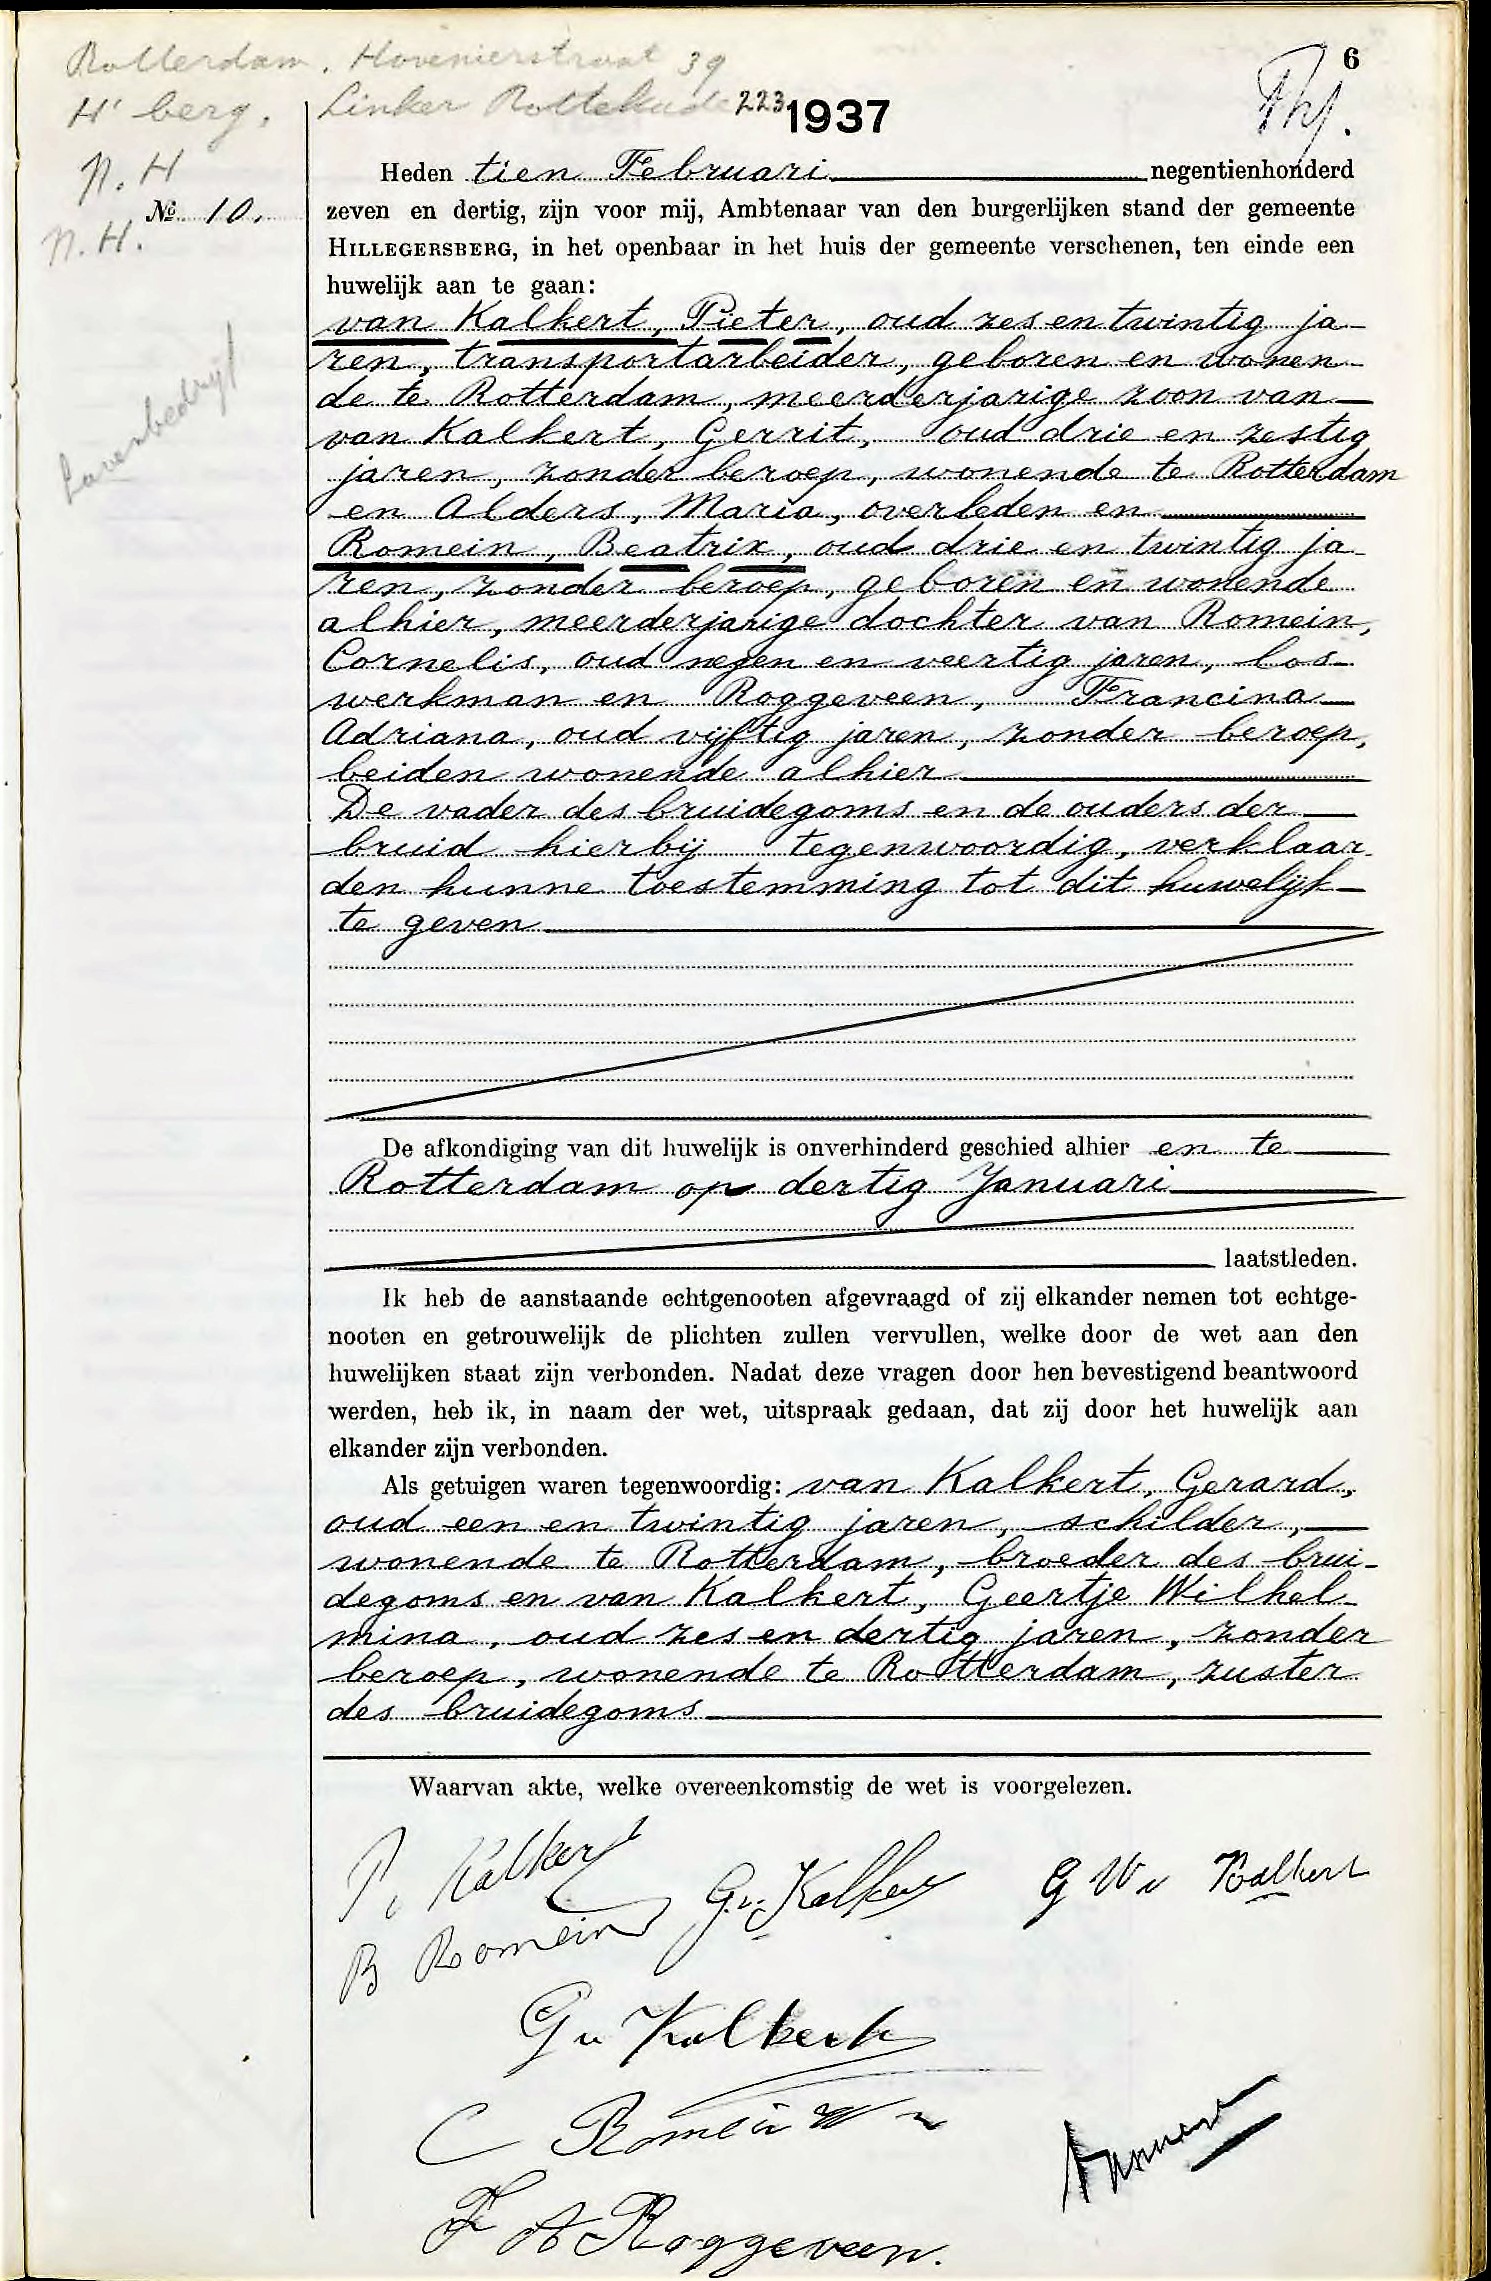 Rotterdam, Hovenierstraat 39
6
H'berg, Linker Rottekade 223
1937
N. H
Heden tien Februari negentienhonderd
No. 10.
zeven en dertig, zijn voor mij, Ambtenaar van den burgerlijken stand der gemeente
N. H.
HILLEGERSBERG, in het openbaar in het huis der gemeente verschenen, ten einde een
huwelijk aan te gaan:
van Kalkert, Pieter, oud zes en twintig ja-
ren, transportarbeider, geboren en wonen-
de te Rotterdam, meerderjarige zoon van
van Kalkert, Gerrit, oud drie en zestig
jaren, zonder beroep, wonende te Rotterdam
en Alders, Maria, overleden en
Romein, Beatrix, oud drie en twintig ja-
ren, zonder beroep, geboren en wonende
alhier, meerderjarige dochter van Romein,
Cornelis, oud negen en veertig jaren, los-
werkman en Roggeveen, Francina
Adriana, oud vijftig jaren, zonder beroep,
beiden wonende alhier
De vader des bruidegoms en de ouders der
bruid hierbij tegenwoordig, verklaar-
den hunne toestemming tot dit huwelijk
te geven
De afkondiging van dit huwelijk is onverhinderd geschied alhier en te
Rotterdam op dertig Januari
laatstleden.
Ik heb de aanstaande echtgenooten afgevraagd of zij elkander nemen tot echtge-
nooten en getrouwelijk de plichten zullen vervullen, welke door de wet aan den
huwelijken staat zijn verbonden. Nadat deze vragen door hen bevestigend beantwoord
werden, heb ik, in naam der wet, uitspraak gedaan, dat zij door het huwelijk aan
elkander zijn verbonden.
Als getuigen waren tegenwoordig: van Kalkert, Gerard,
oud een en twintig jaren, schilder,
wonende te Rotterdam, broeder des brui-
degoms en van Kalkert, Geertje Wilhel-
mina, oud zes en dertig jaren, zonder
beroep, wonende te Rotterdam, zuster
des bruidegoms
Waarvan akte, welke overeenkomstig de wet is voorgelezen.
P v Kalkert
G. v. Kalkert
G W v Kalkert
B Romein
G v Kalkert
C Romein
F A Roggeveen.